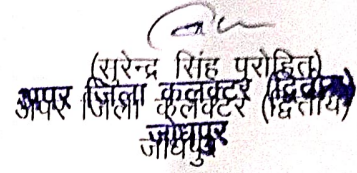 (सुरेन्द्र सिंह पुरोहित)
अपर जिला कलेक्टर (द्वितीय)
जोधपुर